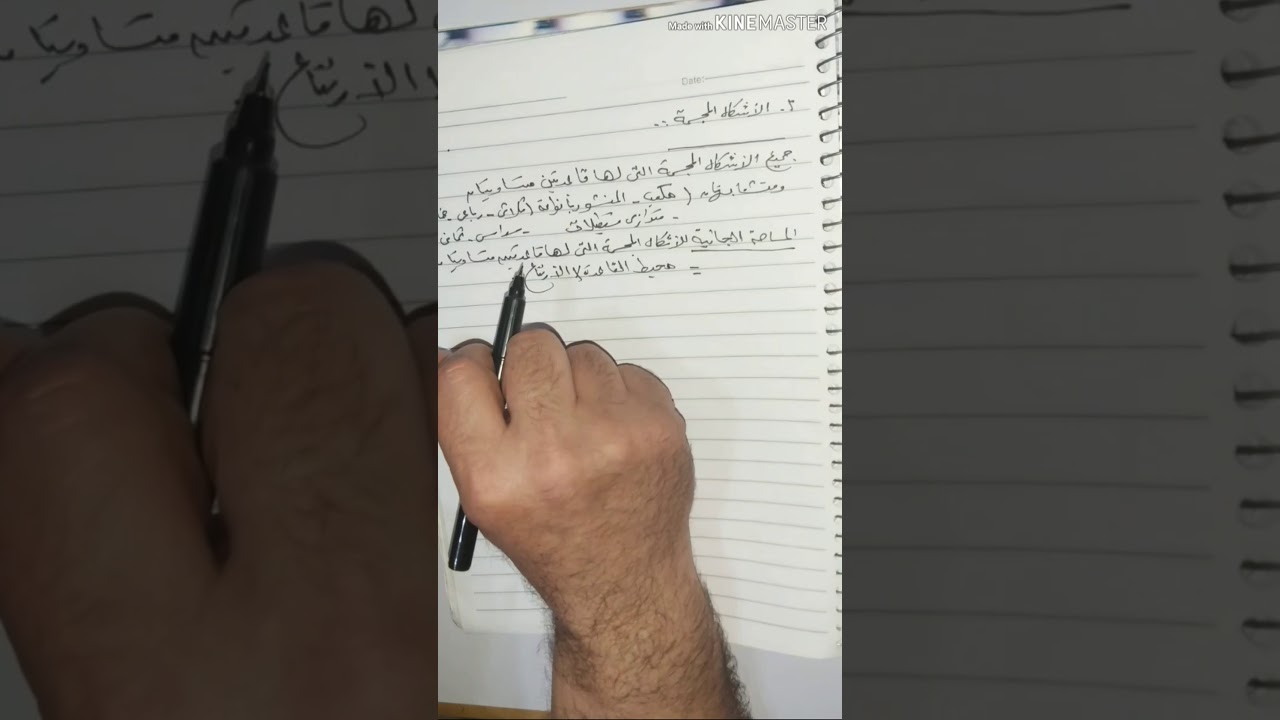 Made with KINEMASTER
Date:
٣. الأشكال المجسمة ..
جميع الأشكال المجسمة التى لها قاعدتين متساويتان
ومتشابهتان ( مكعب - المنشور بأنواعه (ثلاثى - رباعى -
- متوازى مستطيلات - سداسى - ثمانى
المساحة الجانبية للأشكال المجسمة التى لها قاعدتين متساويتان
= محيط القاعدة × الارتفاع